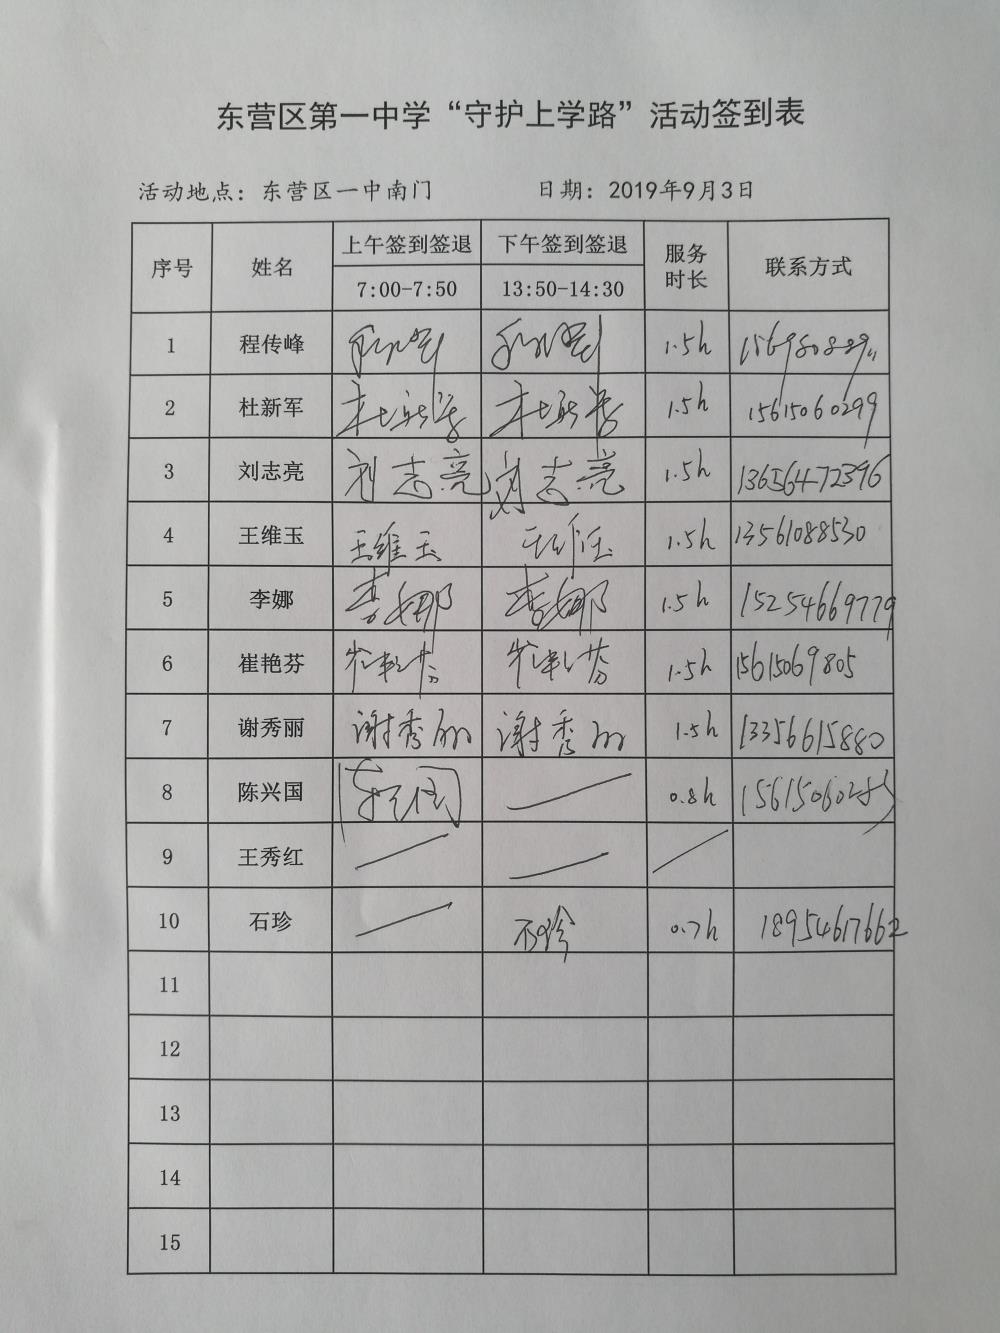 东营区第一中学“守护上学路”活动签到表
活动地点：东营区一中南门 日期：2019年9月3日
序号 姓名 上午签到签退 下午签到签退 服务时长 联系方式
7:00-7:50 13:50-14:30
1 程传峰 1.5h
2 杜新军 杜新军 杜新军 1.5h 15615060299
3 刘志亮 刘志亮 刘志亮 1.5h 13656472396
4 王维玉 王维玉 1.5h 13561088530
5 李娜 李娜 李娜 1.5h 15254669779
6 崔艳芬 崔艳芬 崔艳芬 1.5h 15615069805
7 谢秀丽 谢秀丽 谢秀丽 1.5h 13356615880
8 陈兴国 陈兴国 0.8h
9 王秀红
10 石珍 石珍 0.7h 18954617662
11
12
13
14
15